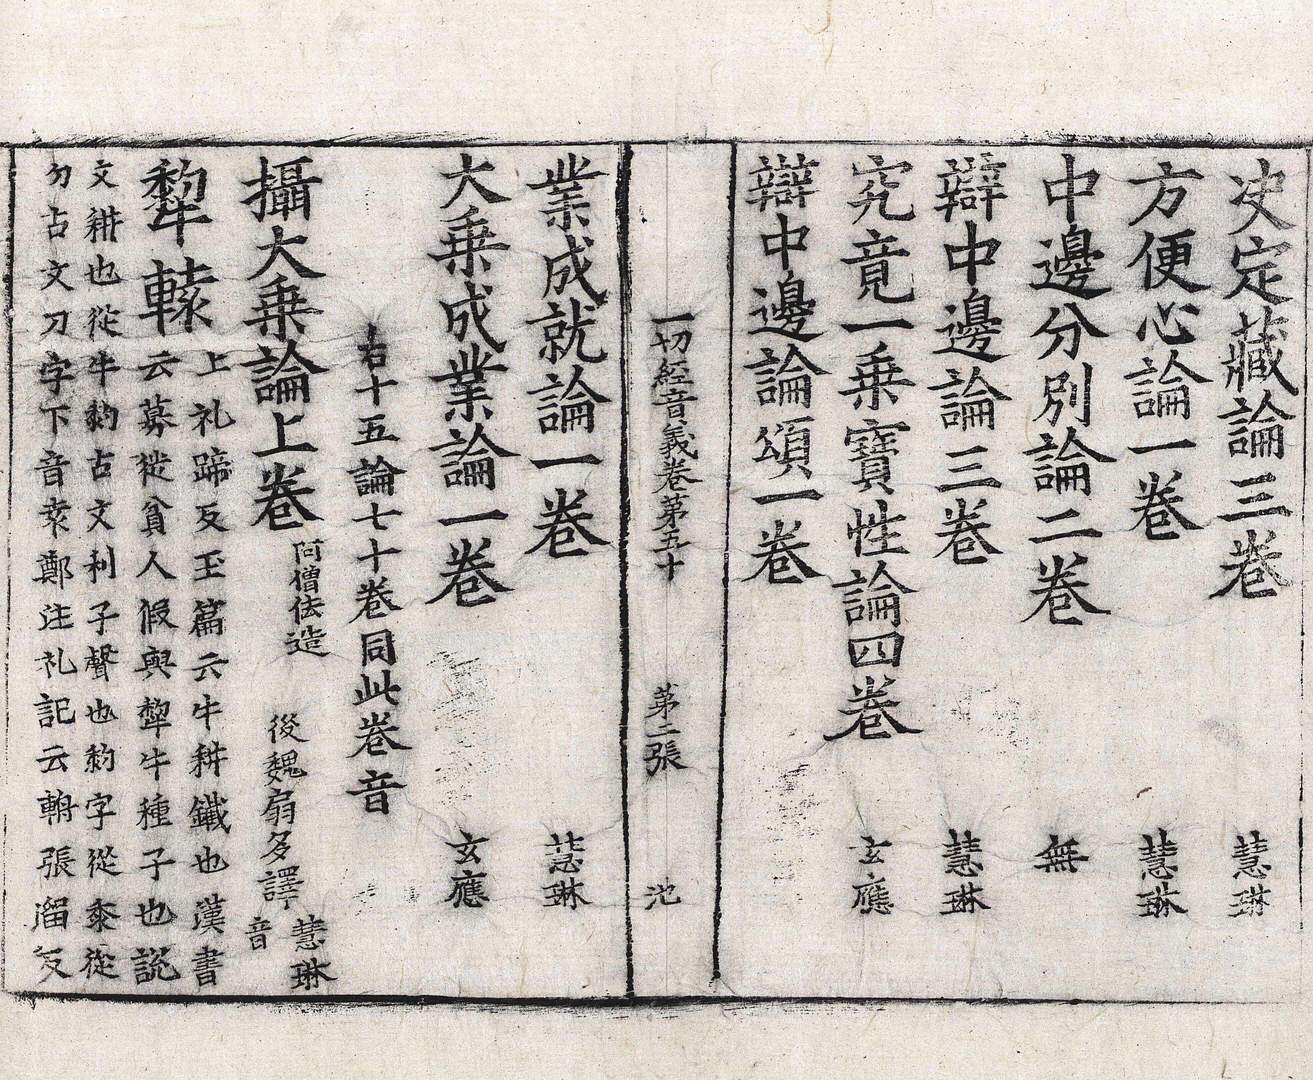 决定藏論三卷 慧琳
方便心論一卷 慧琳
中邊分別論二卷 無
辯中邊論三卷 慧琳
究竟一乗寶性論四卷 玄應
辯中邊論頌一卷
一切經音義卷第五十 第二張 池
業成就論一卷 慧琳
大乗成業論一卷 玄應
右十五論七十卷同此卷音
攝大乗論上卷 阿僧佉造 後魏扇多譯 慧琳音
犂轅 上礼蹄反玉篇云牛耕鐵也漢書
云募從貧人假與犂牛種子也說
文耕也從牛𥝢古文利子聲也𥝢字從黍從
勿占文刀字下音爰鄭注礼記云輈張溜反